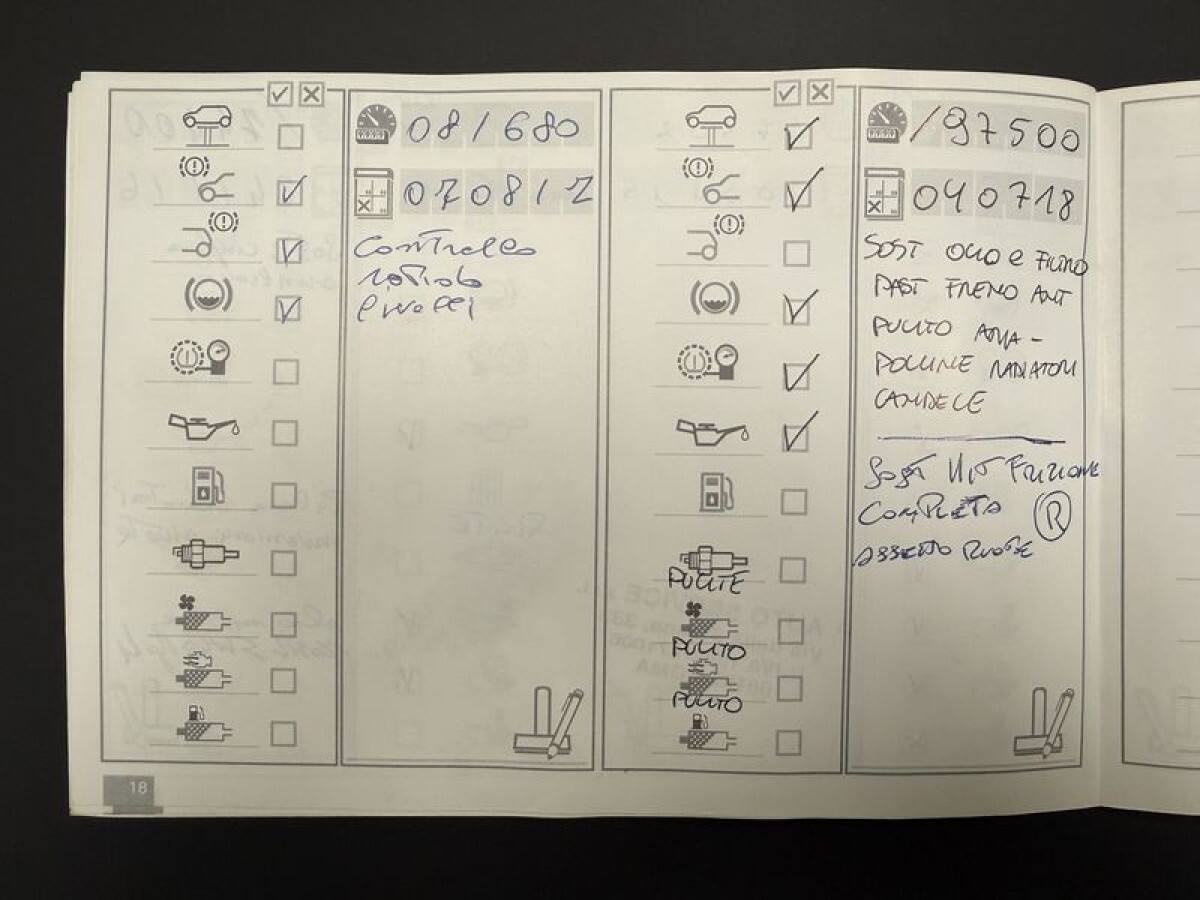 081680
070812
Controllo
PULITE
PULITO
PULITO
197500
040718
SOST OLIO e FILTRO
PAST FRENO ANT
PULITO ARIA -
POLLINE RADIATORI
CANDELE
SOST KIT FRIZIONE
COMPLETA R
ASSETTO RUOTE
18